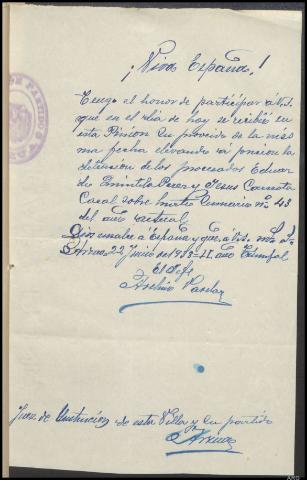 ¡Viva España!
Tengo el honor de participar á V.S.
que en el dia de hoy se recibió en
esta Prision su proveido de la mis
ma fecha elevando á prision la
detencion de los procesados Eduar
do Perez y Jesus
Casal sobre hurto sumario nº 43
del año actual.
Dios salve á España y gue. á V.S. ms. as.
Arzua, 22 Junio de 1938 - II año Triunfal
El Jefe
Juez de Instrucion de esta Villa y su partido
Arzua